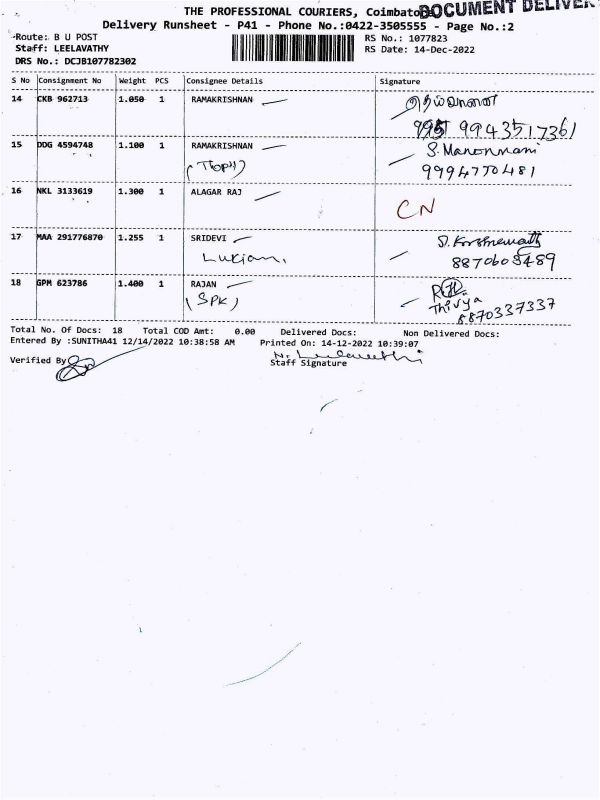 THE PROFESSIONAL COURIERS, Coimbatore
DOCUMENT DELIVERY
Delivery Runsheet - P41 - Phone No.:0422-3505555 - Page No.:2
Route: B U POST
RS No.: 1077823
Staff: LEELAVATHY
RS Date: 14-Dec-2022
DRS No.: DCJB107782302
S No Consignment No Weight PCS Consignee Details Signature
14 CKB 962713 1.050 1 RAMAKRISHNAN
9943517361
15 DDG 4594748 1.100 1 RAMAKRISHNAN S. Manonmani
9994770481
16 NKL 3133619 1.300 1 ALAGAR RAJ CN
17 MAA 291776870 1.255 1 SRIDEVI
18 GPM 623786 1.400 1 RAJAN
(SPK) Thivya
8870337337
Total No. Of Docs: 18 Total COD Amt: 0.00 Delivered Docs: Non Delivered Docs:
Entered By :SUNITHA41 12/14/2022 10:38:58 AM Printed On: 14-12-2022 10:39:07
Verified By
Staff Signature